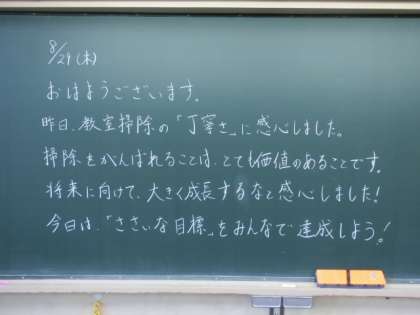 8/29(木)
おはようございます。
昨日、教室掃除の「丁寧さ」に感心しました。
掃除をがんばれることは、とても価値のあることです。
将来に向けて、大きく成長するなと感心しました!
今日は、「ささいな目標」をみんなで達成しよう!